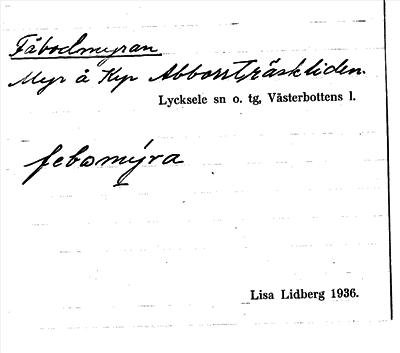 Fäbodmyran
Myr å Krp Abborrträskliden.
Lycksele sn o. tg, Västerbottens l.
febomýra
Lisa Lidberg 1936.